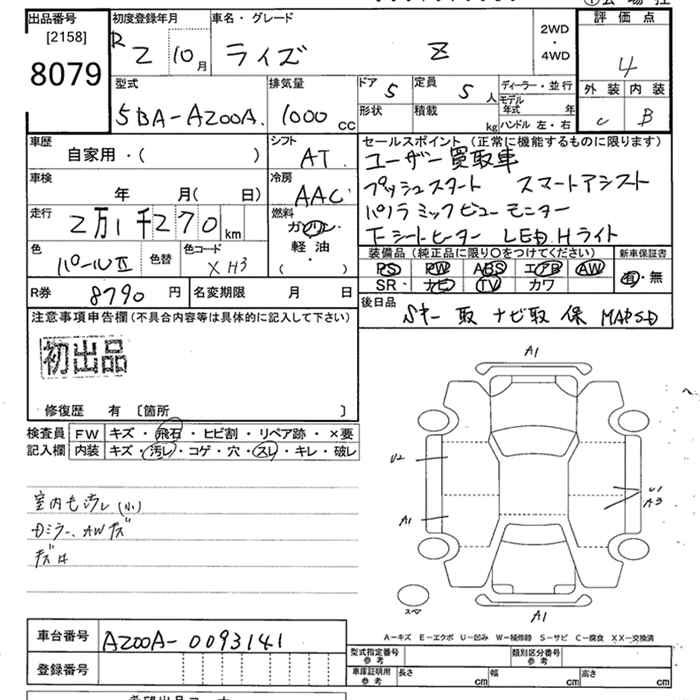 出品番号 [2158] 8079
初度登録年月 R 2 10月
車名・グレード ライズ Z
2WD・4WD
評価点 4
外装 C 内装 B
型式 5BA-A200A
排気量 1000 CC
ドア 5 定員 5人
形状 積載 kg
ディーラー・並行
モデル年式 年
ハンドル 左・右
車歴 自家用・( )
シフト AT
セールスポイント(正常に機能するものに限ります)
ユーザー買取車
プッシュスタート スマートアシスト
パノラミックビューモニター
F-シートヒーター LED Hライト
車検 年 月( 日)
冷房 AAC
走行 2万1千270km
燃料 ガソリン・軽油・( )
色 パールII 色替 色コード XH3
装備品(純正品に限り○をつけてください) 新車保証書
PS PW ABS エアB AW 有・無
SR・ナビ TV カワ
R券 8790円 名変期限 月 日
後日品 Sキー 取 ナビ取 保 MAPSD
注意事項申告欄(不具合内容等は具体的に記入して下さい)
初出品
修復歴 有 〔箇所 〕
検査員記入欄
FW キズ・飛石・ヒビ割・リペア跡・×要
内装 キズ・汚レ・コゲ・穴・スレ・キレ・破レ
室内もヨゴレ(小)
Dミラー、AWキズ
A1
U2
A1
U1
A3
スペア
A1
A-キズ E-エクボ U-凹み W-補修跡 S-サビ C-腐食 XX-交換済
車台番号 A200A-0093141
登録番号
型式指定番号 参考
類別区分番号 参考
車庫証明用 参考 長さ cm 幅 cm 高さ cm